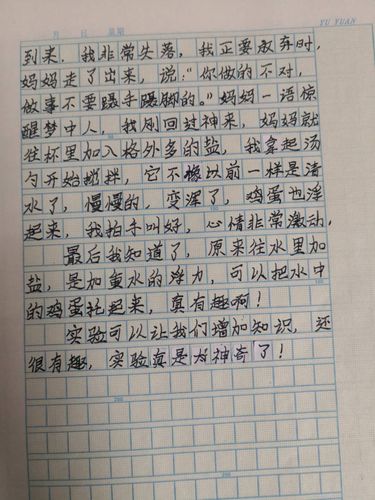 月 日 星期 YU YUAN
到来，我非常失落，我正要放弃时，
妈妈走了出来，说：“你做的不对，
做事不要蹑手蹑脚的。”妈妈一语惊
醒梦中人，我刚回过神来，妈妈就
往杯里加入格外多的盐，我拿起汤
勺开始搅拌，它不像以前一样是清
水了，慢慢的，变浑了，鸡蛋也浮
起来，我拍手叫好，心情非常激动，
最后我知道了，原来往水里加
盐，是加重水的浮力，可以把水中
的鸡蛋托起来，真有趣啊！
实验可以让我们增加知识，还
很有趣，实验真是太神奇了！